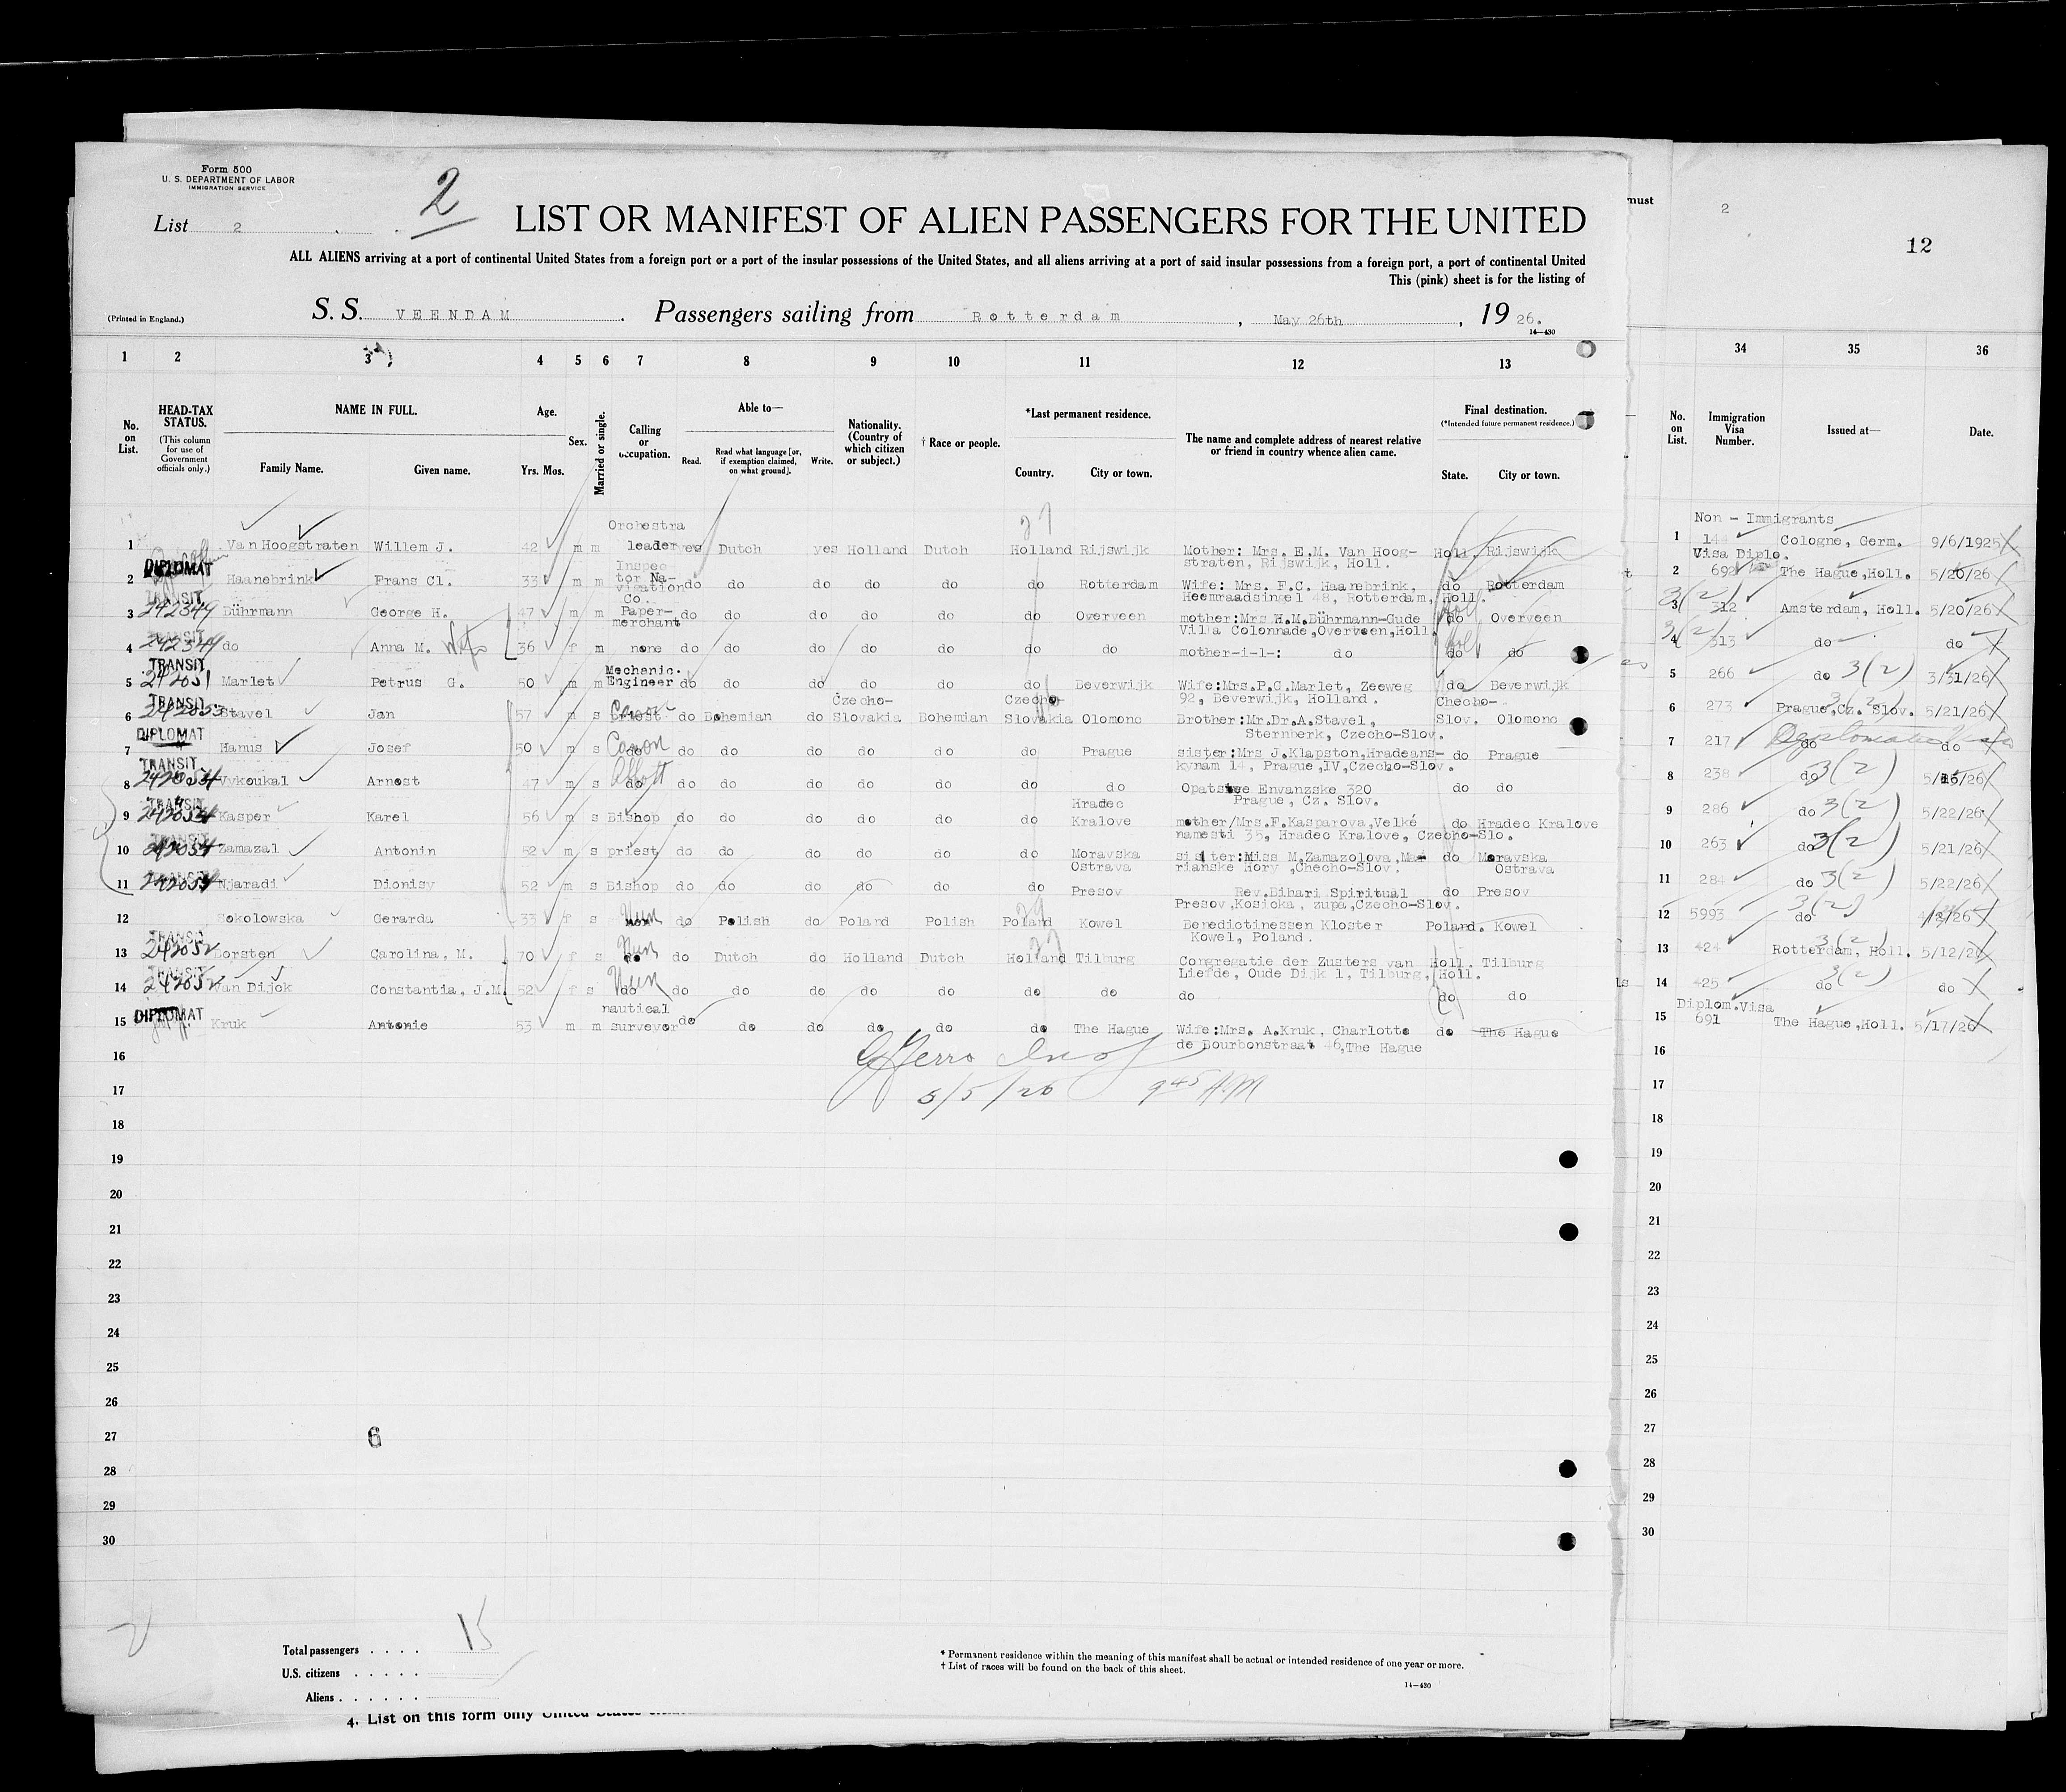 Form 500
U. S. DEPARTMENT OF LABOR
IMMIGRATION SERVICE
List 2
2
LIST OR MANIFEST OF ALIEN PASSENGERS FOR THE UNITED
ALL ALIENS arriving at a port of continental United States from a foreign port or a port of the insular possessions of the United States, and all aliens arriving at a port of said insular possessions from a foreign port, a port of continental United
This (pink) sheet is for the listing of
(Printed in England.)
S. S. VEENDAM . Passengers sailing from Rotterdam , May 26th , 19 26.
14—430
must
2
12
1 2 3 4 5 6 7 8 9 10 11 12 13
34 35 36
No. on List.
HEAD-TAX STATUS.
(This column for use of Government officials only.)
NAME IN FULL.
Family Name. Given name.
Age.
Yrs. Mos.
Sex.
Married or single.
Calling or occupation.
Able to—
Read. Read what language [or, if exemption claimed, on what ground]. Write.
Nationality. (Country of which citizen or subject.)
† Race or people.
*Last permanent residence.
Country. City or town.
The name and complete address of nearest relative or friend in country whence alien came.
Final destination.
(*Intended future permanent residence.)
State. City or town.
No. on List. Immigration Visa Number. Issued at— Date.
Non - Immigrants
1 Van Hoogstraten Willem J. 42 m m Orchestra leader yes Dutch yes Holland Dutch Holland Rijswijk Mother: Mrs. E.M. Van Hoog-straten, Rijswijk, Holl. Holl. Rijswijk
1 Cologne, Germ. 9/6/1925
2 DIPLOMAT Haanebrink Frans Cl. 33 m m Inspec-tor Na-vigation Co. do do do do do do Rotterdam Wife: Mrs. F.C. Haanebrink, Heemraadsingel 48, Rotterdam, Holl. do Rotterdam
Visa Diplo.
2 692 The Hague, Holl. 5/20/26
3 TRANSIT 242349 Bührmann George H. 47 m m Paper-merchant do do do do do do Overveen mother:Mrs H.M.Bührmann-Gude Villa Colonnade,Overveen,Holl. do Overveen
3 312 3(2) Amsterdam, Holl. 5/20/26
4 TRANSIT 242349 do Anna M. Wife 36 f m none do do do do do do do mother-i-l-: do do do
4 313 3(2) do do
5 TRANSIT 242051 Marlet Petrus G. 50 m m Mechanic. Engineer do do do do do do Beverwijk Wife:Mrs.P.G.Marlet, Zeeweg 92, Beverwijk, Holland. do Beverwijk
5 266 do 3(2) 3/31/26
6 TRANSIT 242053 Stavel Jan 57 m s priest Canon do Bohemian do Czecho-Slovakia Bohemian Czecho-Slovakia Olomouc Brother:Mr.Dr.A.Stavel, Sternberk, Czecho-Slov. Checho-Slov. Olomouc
6 273 Prague,Cz. Slov. 3(2) 5/21/26
7 DIPLOMAT Hanus Josef 50 m s do Canon do do do do do do Prague sister:Mrs J.Klapston,Hradcans-kynam 14, Prague,IV,Czecho-Slov. do Prague
7 217 do Diplomatic Visa do
8 TRANSIT 242054 Vykoukal Arnost 47 m s do Abbott do do do do do do do Opatstve Emvanzske 320 Prague, Cz. Slov. do do
8 238 do 3(2)
9 TRANSIT 242054 Kasper Karel 56 m s Bishop do do do do do do Hradec Kralove mother/Mrs.F.Kasparova,Velké namesti 35, Hradec Kralove, Czecho-Slo. do Hradec Kralove
9 286 do 3(2) 5/22/26
10 242054 Zamazal Antonin 52 m s priest do do do do do do Moravska Ostrava sister:Miss M.Zamazolova,Ma-rianske Hory ,Checho-Slov. do Moravska Ostrava
10 263 do 3(2) 5/21/26
11 TRANSIT 242054 Njaradi Dionisy 52 m s Bishop do do do do do do Presov Rev.Bihari Spiritual Presov,Kosicka, zupa,Czecho-Slov. do Presov
11 284 do 3(2) 5/22/26
12 Sokolowska Gerarda 33 f s Nun do Polish do Poland Polish Poland Kowel Benedictinessen Kloster Kowel, Poland. Poland. Kowel
12 5993 do 3(2)
13 TRANSIT 242052 Dorsten Carolina, M. 70 f s do Nun do Dutch do Holland Dutch Holland Tilburg Congregatie der Zusters van Liefde, Oude Dijk 1, Tilburg, Holl. Holl. Tilburg
13 424 Rotterdam, Holl. 3(2) 5/12/26
14 TRANSIT 242052 Van Dijck Constantia, J.M. 52 f s do Nun do do do do do do do do do do
14 425 do 3(2) do
15 DIPLOMAT Kruk Antonie 53 m m nautical surveyor do do do do do do The Hague Wife:Mrs. A.Kruk, Charlotte de Bourbonstraat 46,The Hague do The Hague
Diplom.Visa
15 691 The Hague,Holl. 5/17/26
16
17 9 45 A.M
18
19
20
21
22
23
24
25
26
27 6
28
29
30
16
17
18
19
20
21
22
23
24
25
26
27
28
29
30
Total passengers . . . . 15
U.S. citizens . . . . .
Aliens . . . . . .
* Permanent residence within the meaning of this manifest shall be actual or intended residence of one year or more.
† List of races will be found on the back of this sheet.
14—430
4. List on this form only United States